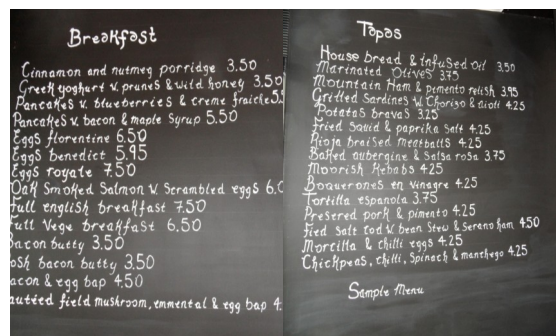 Breakfast
Cinnamon and nutmeg porridge 3.50
Greek yoghurt w. prunes & wild honey 3.50
Pancakes w. blueberries & creme fraiche 5.5
Pancakes w. bacon & maple syrup 5.50
Eggs florentine 6.50
Eggs benedict 5.95
Eggs royale 7.50
Oak smoked Salmon w. Scrambled eggs 6.0
Full english breakfast 7.50
Full Vege breakfast 6.50
Bacon butty 3.50
osh bacon butty 3.50
acon & egg bap 4.50
autéed field mushroom, emmental & egg bap 4.
Tapas
House bread & infused oil 3.50
Marinated Olives 3.75
Mountain Ham & pimento relish 3.95
Grilled Sardines w. Chorizo & aioli 4.25
Potatas bravas 3.25
Fried Squid & paprika Salt 4.25
Rioja braised meatballs 4.25
Baked aubergine & Salsa rosa 3.75
Moorish Kebabs 4.25
Boquerones en vinagre 4.25
Tortilla espanola 3.75
Presered pork & pimento 4.25
Fied Salt Cod w. bean Stew & Serano ham 4.50
Morcilla & chilli eggs 4.25
Chickpeas, chilli, Spinach & manchego 4.25
Sample Menu